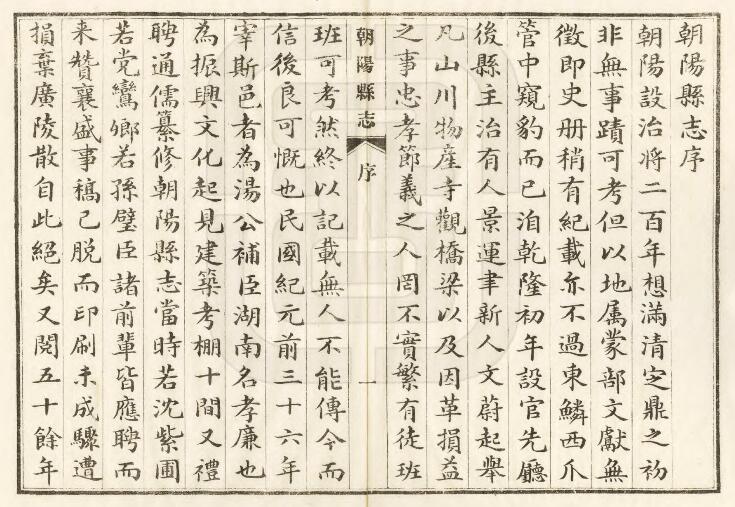 朝陽縣志序
朝陽設治將二百年想滿清定鼎之初
非無事蹟可考但以地属蒙部文獻無
徵即史册稍有紀載亦不過東鱗西爪
管中窺豹而已洎乾隆初年設官先廳
後縣主治有人景運聿新人文蔚起舉
凡山川物產寺觀橋梁以及因革損益
之事忠孝節義之人罔不實繁有徒班
朝陽縣志 序 一
班可考然終以記載無人不能傳今而
信後良可慨也民國紀元前三十六年
宰斯邑者為湯公補臣湖南名孝廉也
為振興文化起見建築考棚十間又禮
聘通儒纂修朝陽縣志當時若沈紫圃
若党鸞卿若孫璧臣諸前輩皆應聘而
来贊襄盛事稿已脱而印刷未成驟遭
損棄廣陵散自此絕矣又閱五十餘年